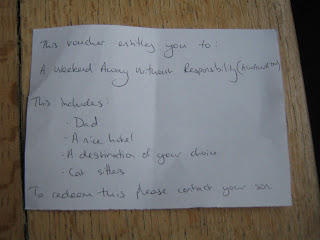 This voucher entitles you to:
A Weekend Away Without Responsibility (AWAWR™)
This includes:
- Dad
- A nice hotel
- A destination of your choice
- Cat sitters
To redeem this please contact your son.